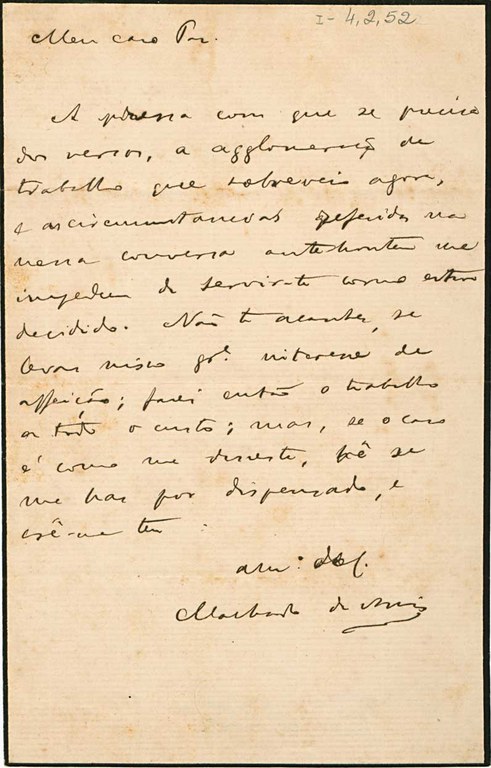 I-4,2,52
Meu caro Par.
A pressa com que se precisa
dos versos, a agglomeração de
trabalho que sobreveio agora,
e as circumstancias referidas na
nossa conversa antehontem me
impedem de servir-te como estava
decidido. Não te acanhes, se
levas nisso gr.e interesse de
affeição; farei então o trabalho
a todo o custo; mas, se o caso
é como me disseste, vê se
me has por dispensado, e
crê-me teu
am.o
Machado de Assis